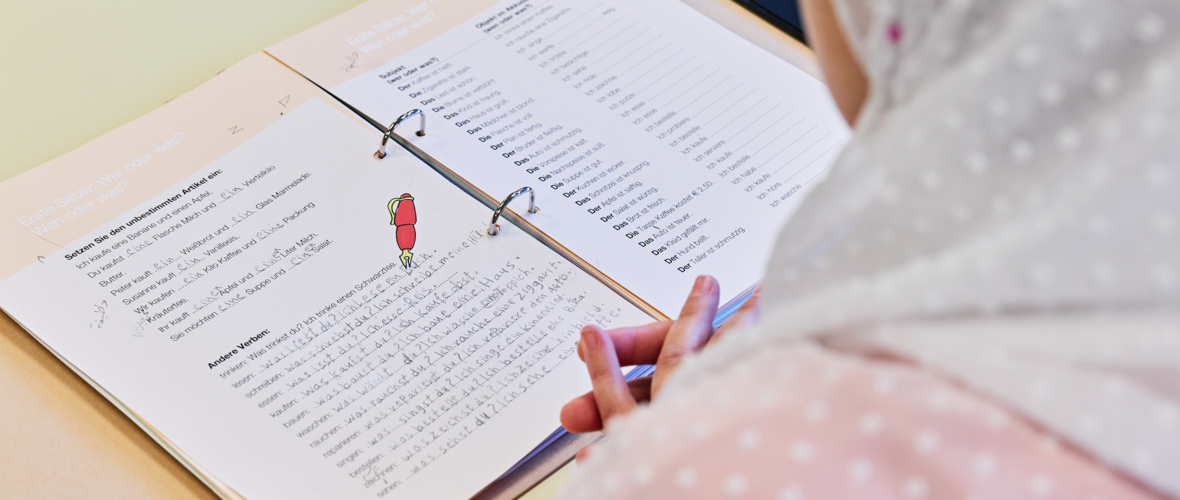 Erste Sätze: Wer oder was?
Wen oder was?
Setzen Sie den unbestimmten Artikel ein:
Ich kaufe eine Banane und einen Apfel.
Du kaufst eine Flasche Milch und ein Viertelkilo
Butter.
Peter kauft ein Weißbrot und ein Glas Marmelade.
Susanne kauft ein Vanilleeis.
Wir kaufen ein Kilo Kaffee und eine Packung
Kräutertee.
Ihr kauft einen Apfel und einen Liter Milch.
Sie möchten eine Suppe und einen Salat.
Andere Verben:
trinken: Was trinkst du? Ich trinke einen Schwarztee.
lesen: was liest du? ich lese ein
schreiben: was schreibst du? ich schreibe meine
essen: was isst du? ich esse Reis.
kaufen: was kaufst du? ich kaufe obst.
bauen: was baust du? ich baue einen Haus.
waschen: was du? ich wasche einen teppich.
rauchen: was rauchst du? ich rauche eine Ziggarit.
reparieren: was reparierst du? ich repariere den Auto.
singen: was singst du? ich singe ein kinderlied.
bestellen: was bestellst du? ich bestelle eine
zeichnen: was zeichnest du? ich zeichne ein bild.
sehen: was sehst du? ich sehe eine
Erste Sätze: Wer
Wen oder was?
Subjekt
(wer oder was?)
Der Kaffee ist heiß.
Die Zigarette ist stark.
Das Lied ist schön.
Die Blume ist verblüht.
Das Kind ist traurig.
Das Haus ist groß.
Das Mädchen ist blond.
Die Flasche ist voll.
Der Plan ist fertig.
Der Bruder ist fleißig.
Das Auto ist schmutzig.
Die Vorspeise ist kalt.
Die Nachspeise ist süß.
Die Suppe ist gut.
Der Kuchen ist lecker.
Das Schnitzel ist knusprig.
Der Apfel ist saftig.
Der Salat ist würzig.
Das Brot ist frisch.
Die Tasse Kaffee kostet € 2,50.
Das Auto ist teuer.
Das Kleid gefällt mir.
Der Hund bellt.
Der Teller ist schmutzig.
Objekt im Akkusativ
(wen oder was?)
Ich trinke einen Kaffee.
Ich rauche eine Zigarette.
Ich singe
Ich werfe weg.
Ich tröste
Ich besichtige
Ich sehe
Ich hole
Ich zeichne
Ich lobe
Ich putze
Ich esse
Ich esse
Ich bestelle
Ich probiere
Ich bestelle
Ich kaufe
Ich serviere
Ich kaufe
Ich bestelle
Ich habe
Ich kaufe
Ich höre
Ich wasche